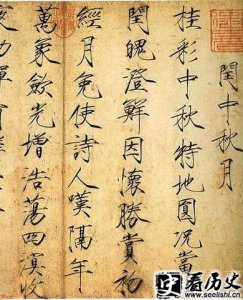 閏中秋月
桂彩中秋特地圓況當
閏魄澄鮮因懷勝賞初
經月免使詩人嘆隔年
萬象歛光增浩蕩四溟收
看历史